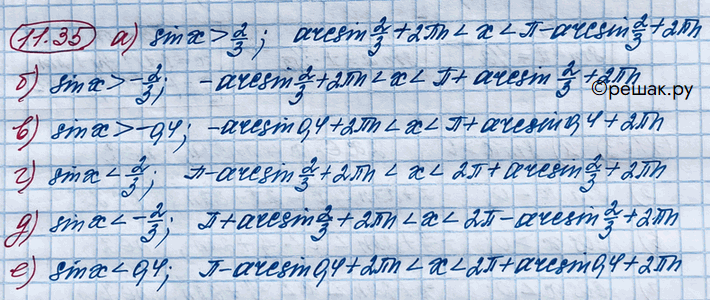 11.35 а) sin x > 2/3; arcsin 2/3 + 2πn < x < π - arcsin 2/3 + 2πn
б) sin x > -2/3; -arcsin 2/3 + 2πn < x < π + arcsin 2/3 + 2πn
©решак.ру
в) sin x > -0,4; -arcsin 0,4 + 2πn < x < π + arcsin 0,4 + 2πn
г) sin x < 2/3; π - arcsin 2/3 + 2πn < x < 2π + arcsin 2/3 + 2πn
д) sin x < -2/3; π + arcsin 2/3 + 2πn < x < 2π - arcsin 2/3 + 2πn
е) sin x < 0,4; π - arcsin 0,4 + 2πn < x < 2π + arcsin 0,4 + 2πn